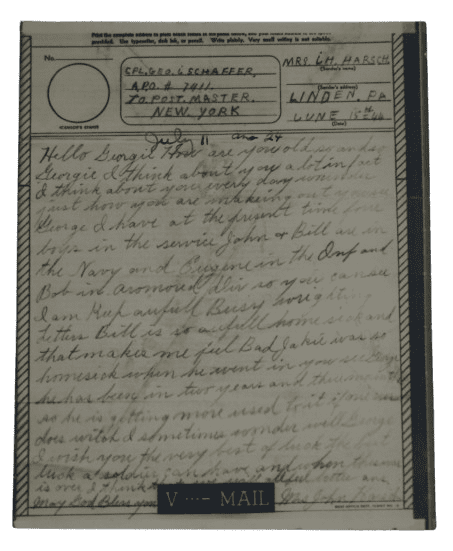 Print the complete address in plain block letters in the panel below, and your return address in the space
provided. Use typewriter, dark ink, or pencil. Write plainly. Very small writing is not suitable.
No.
CPL. GEO. L SCHAFFER,
A.P.O. # 7411.
TO. POST. MASTER.
NEW. YORK
MRS. J.H. HARSCH
(Sender's name)
(Sender's address)
LINDEN, PA
JUNE 15
(Date)
(CENSOR'S STAMP)
July 11 ans 24
Hello Georgie How are you old soandso
Georgie I think about you a lot in fact
I think about you every day wonder
just how you are makeing out you see
George I have at the present time four
boys in the service John & Bill are in
the Navy and Eugene in the Inf and
Bob in armoured Div so you can see
I am Keep aufull Busy wrighting
Letters Bill is so aufull home sick and
that makes me feel Bad Jake was so
homesick when he went in you see
he has been in two years and three months
so he is getting more used to it
does witch I sometimes wonder well George
I wish you the very best of luck the best
luck a soldier can have and when this war
is over I think better
May God Bless you Mrs John
V···— MAIL